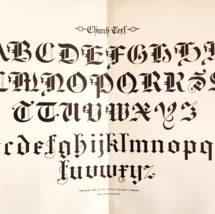 Church Text
ABCDEFGHIJ
LMNOPQRRSS
TTUVWXYZ
cdefghijklmnopq
tuvwxyz